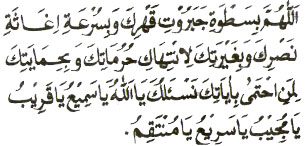 اَللّٰهُمَّ بِسَطْوَةِ جَبَرُوْتِ قَهْرِكَ وَبِسُرْعَةِ اِغَاثَةِ
نَصْرِكَ وَبِغَيْرَتِكَ لِانْتِهَاكِ حُرُمَاتِكَ وَبِحِمَايَتِكَ
لِمَنِ احْتَمٰى بِاٰيَاتِكَ نَسْئَلُكَ يَااَللّٰهُ يَاسَمِيْعُ يَاقَرِيْبُ
يَامُجِيْبُ يَاسَرِيْعُ يَامُنْتَقِمُ.